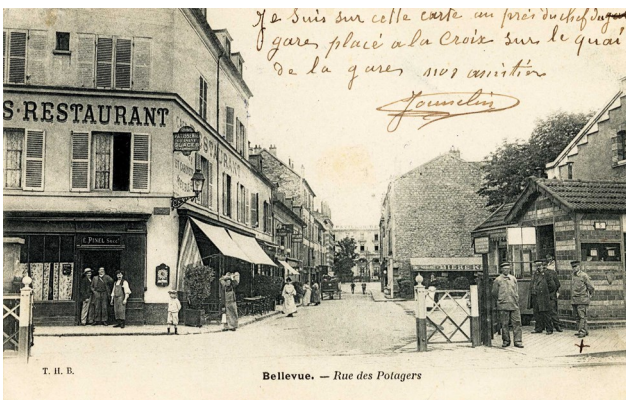 Je suis sur cette carte au près du chef de
gare placé a la Croix sur le quai
de la gare nos amitiés
S·RESTAURANT
PATISSERIE
RESTAURANT
E. PINEL Succr
Bellevue. — Rue des Potagers
T. H. B.